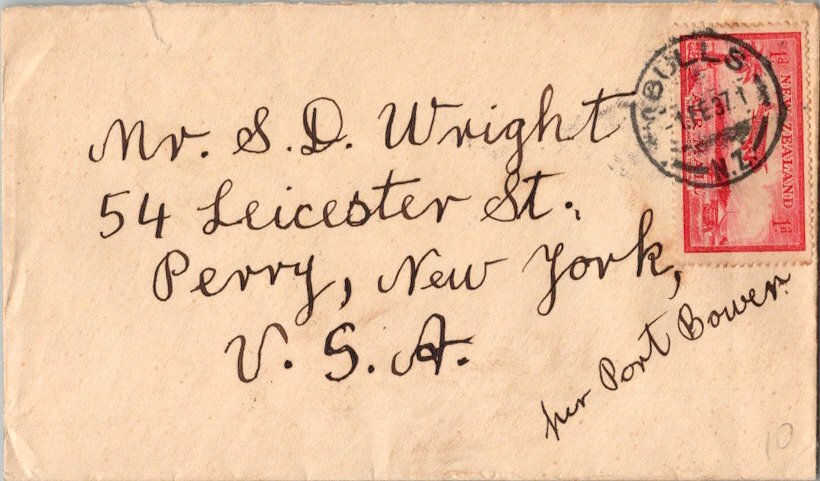 Mr. S. D. Wright
54 Leicester St.
Perry, New York,
U. S. A.
per Port Bower.
BULLS
FE 37.1
N.Z.
1d NEW ZEALAND 1d
AIR MAIL
10